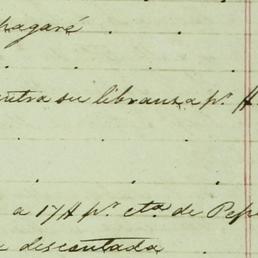 pagaré
contra su libranza pr. H
a 17 H pr. cta. de Pepe
descontada